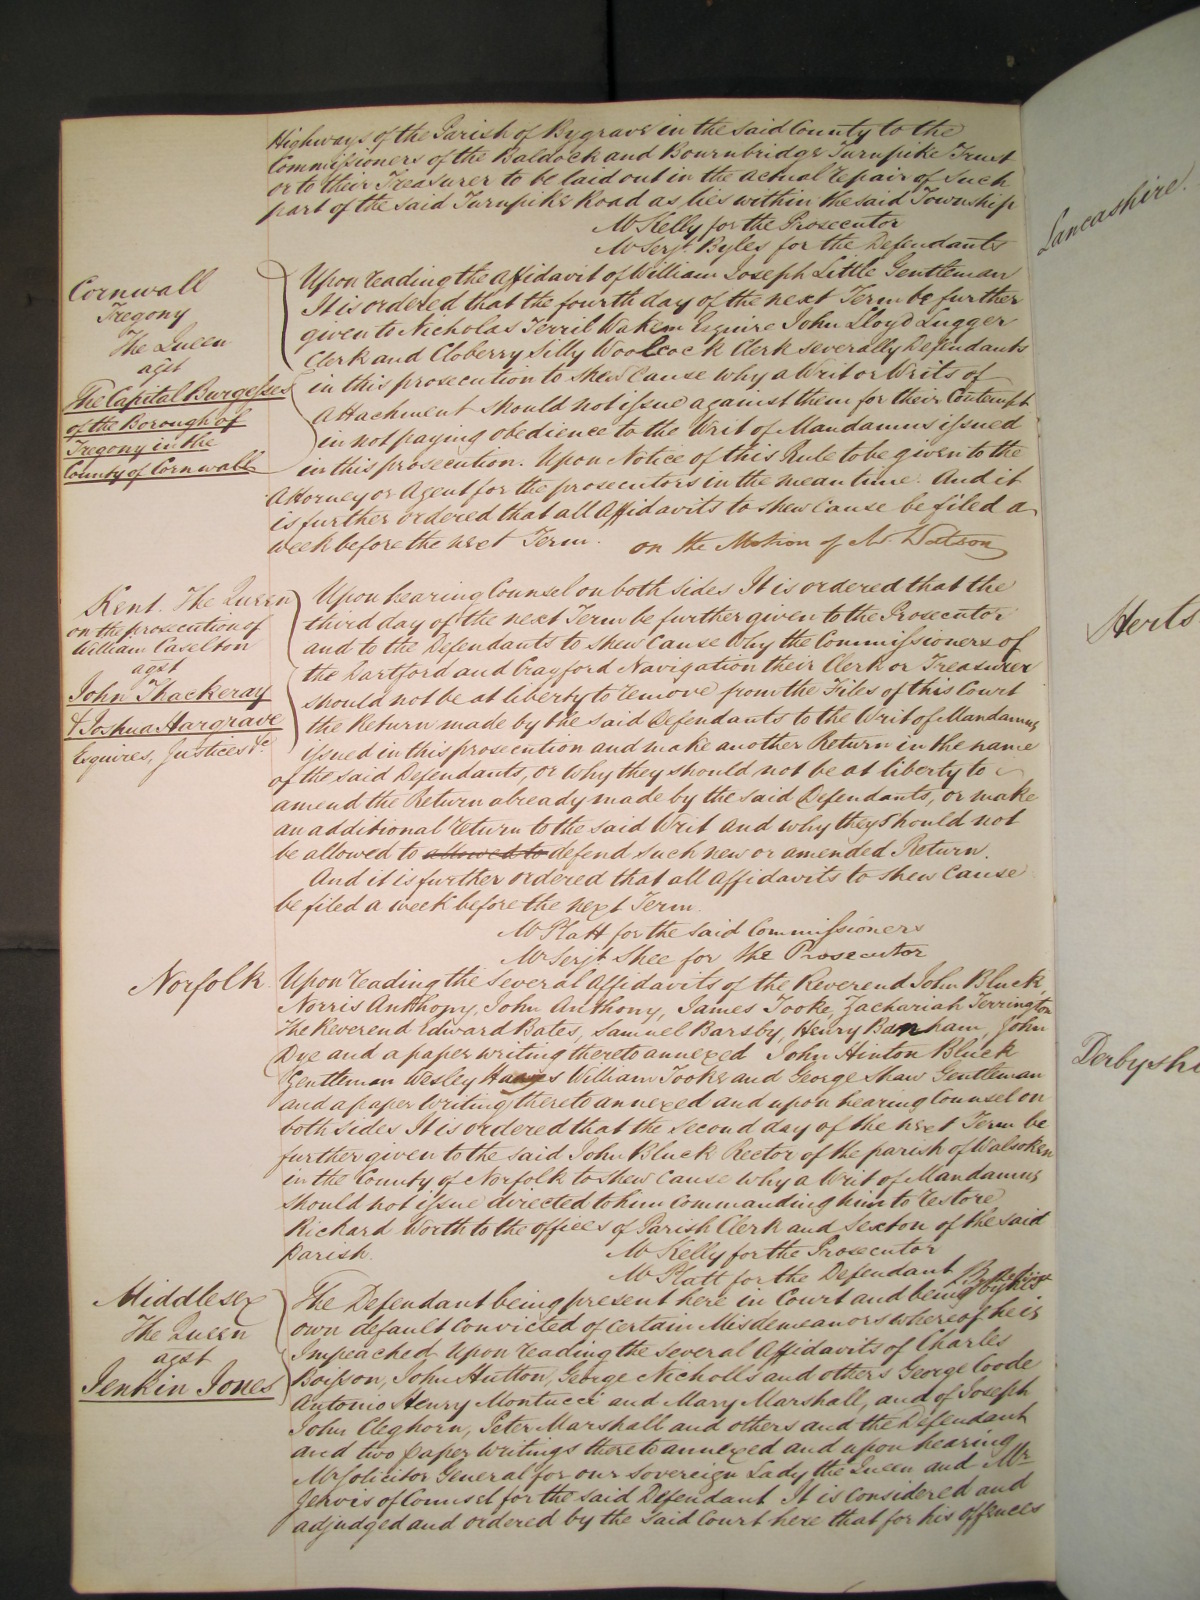 Highways of the Parish of Bygrave in the said County to the
Commissioners of the Baldock and Bournbridge Turnpike Trust
or to their Treasurer to be laid out in the actual repair of such
part of the said Turnpike Road as lies within the said Township
Mr Kelly for the Prosecutor
Mr Serjt Byles for the Defendants
Cornwall
Tregony
The Queen
agst
The Capital Burgesses
of the Borough of
Tregony in the
County of Cornwall
Upon reading the affidavit of William Joseph Little Gentleman
It is ordered that the fourth day of the next Term be further
given to Nicholas Terril Wakem Esquire John Lloyd Lugger
Clerk and Cloberry Silly Woolcock Clerk severally Defendants
in this prosecution to shew Cause why a Writ or Writs of
Attachment should not issue against them for their Contempt
in not paying obedience to the Writ of Mandamus issued
in this prosecution. Upon Notice of this Rule to be given to the
Attorney or Agent for the prosecutors in the mean time. And it
is further ordered that all Affidavits to shew Cause be filed a
week before the next Term. on the Motion of Mr Watson
Kent. The Queen
on the prosecution of
William Caselton
agst
John Thackeray
& Joshua Hargrave
Esquires, Justices &c
Upon hearing Counsel on both sides It is ordered that the
third day of the next Term be further given to the Prosecutor
and to the Defendants to shew Cause Why the Commissioners of
the Dartford and Crayford Navigation their Clerk or Treasurer
should not be at liberty to remove from the Files of this Court
the Return made by the said Defendants to the Writ of Mandamus
issued in this prosecution and make another Return in the name
of the said Defendants, or why they should not be at liberty to
amend the Return already made by the said Defendants, or make
an additional return to the said Writ and why they should not
be allowed to allowed to defend such new or amended Return.
And it is further ordered that all Affidavits to shew Cause
be filed a week before the next Term.
Mr Platt for the said Commissioners
Mr Serjt Shee for the Prosecutor
Norfolk
Upon reading the several Affidavits of the Reverend John Bluck,
Norris Anthony, John Anthony, James Tooke, Zachariah Terrington
the Reverend Edward Bates, Samuel Barsby, Henry Banham, John
Dye and a paper writing thereto annexed John Hinton Bluck
Gentleman Wesley William Tooke and George Shaw Gentleman
and a paper Writing thereto annexed and upon hearing Counsel on
both sides It is ordered that the second day of the next Term be
further given to the said John Bluck Rector of the parish of Walsoken
in the County of Norfolk to shew Cause why a Writ of Mandamus
should not issue directed to him commanding him to restore
Richard Worth to the offices of Parish Clerk and Sexton of the said
parish.
Mr Kelly for the Prosecutor
Mr Platt for the Defendant
Middlesex
The Queen
agst
Jenkin Jones
The Defendant being present here in Court and being by his
own default Convicted of certain Misdemeanors whereof he is
Impeached Upon reading the several Affidavits of Charles
John Hutton, George Nicholls and others George Goode
Antonio Henry Montucci and Mary Marshall, and of Joseph
John Cleghorn, Peter Marshall and others and the Defendant
and two paper Writings thereto annexed and upon hearing
Mr Solicitor General for our Sovereign Lady the Queen and Mr
Jervis of Counsel for the said Defendant It is considered and
adjudged and ordered by the said Court here that for his offences
Lancashire.
Herts
Derbyshi